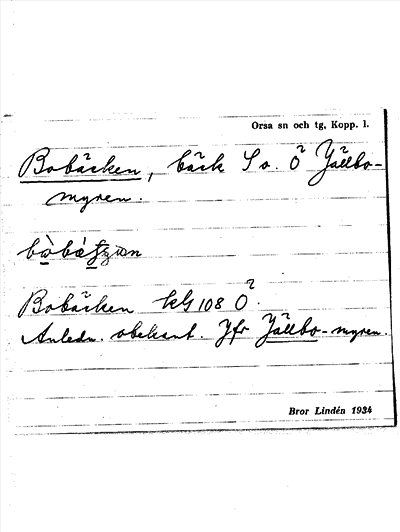 Orsa sn och tg, Kopp. l.
Bobäcken, bäck S o. Ö Jällbo-
myren.
Bobäcken klG 108 Ö.
Anledn. obekant. Jfr Jällbo-myren.
Bror Lindén 1934